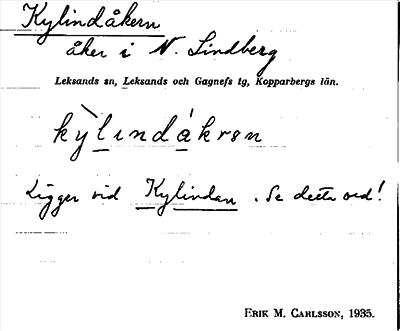 Kylindåkern
åker i N. Lindberg
Leksands sn, Leksands och Gagnefs tg, Kopparbergs län.
kỳlındákrən
Ligger vid Kylindan. Se detta ord!
ERIK M. CARLSSON, 1935.